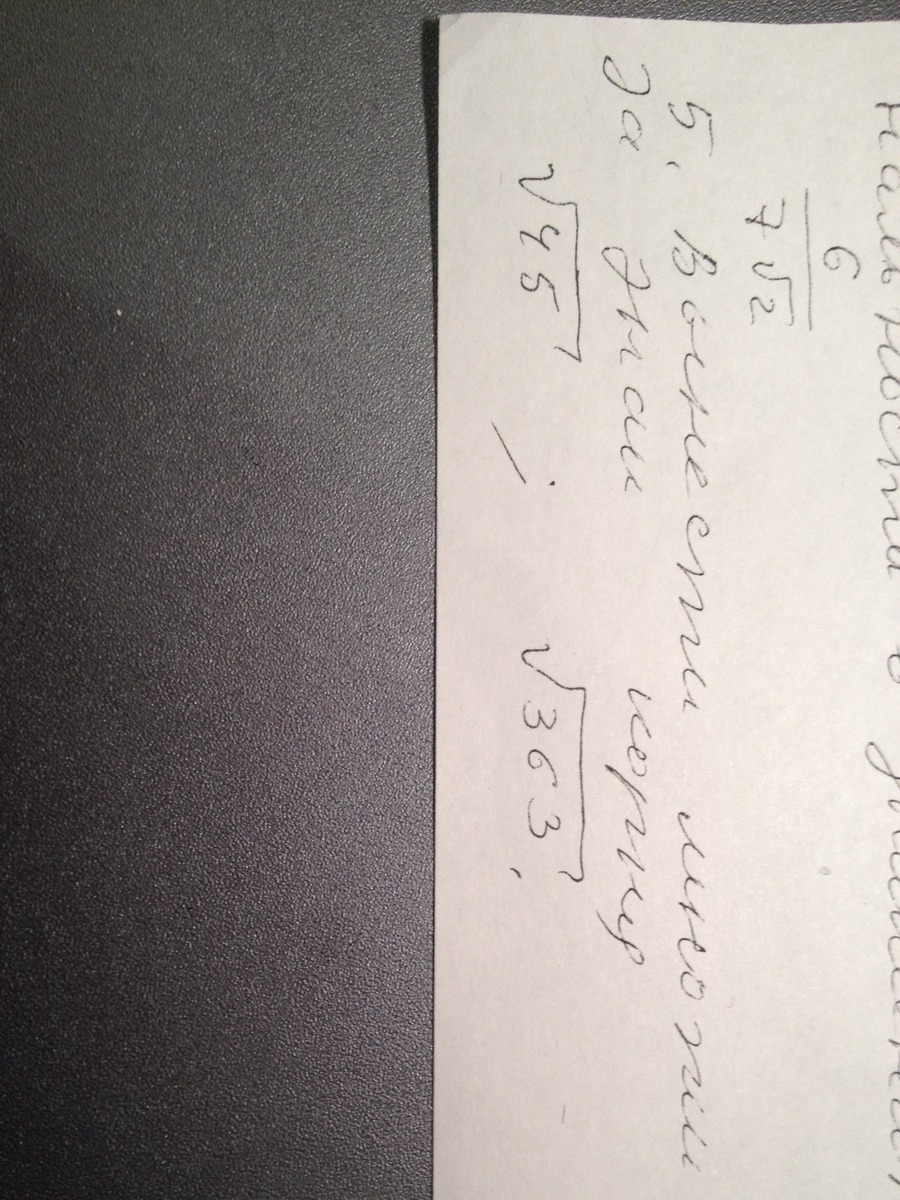 6
7√2
5. Вынести множи
за знак корня
√45 ; √363,